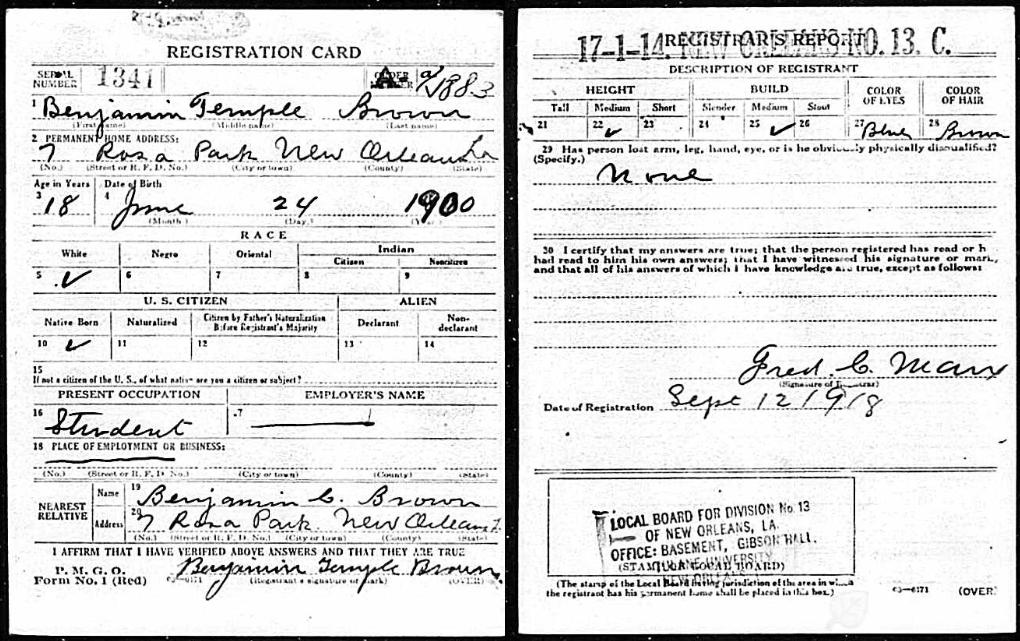 REGISTRATION CARD
SERIAL NUMBER 1341 ORDER NUMBER A 1883
1 Benjamin Temple Brown
(First name) (Middle name) (Last name)
2 PERMANENT HOME ADDRESS:
7 Rosa Park New Orleans La
(No.) (Street or R. F. D. No.) (City or town) (County) (State)
Age in Years Date of Birth
3 18 4 June 24 1900
(Month) (Day) (Year)
RACE
White Negro Oriental Indian
Citizen Noncitizen
5 ✓ 6 7 8 9
U. S. CITIZEN ALIEN
Native Born Naturalized Citizen by Father's Naturalization Before Registrant's Majority Declarant Non-declarant
10 ✓ 11 12 13 14
15
If not a citizen of the U. S., of what nation are you a citizen or subject?
PRESENT OCCUPATION EMPLOYER'S NAME
16 Student 17
18 PLACE OF EMPLOYMENT OR BUSINESS:
(No.) (Street or R. F. D. No.) (City or town) (County) (State)
NEAREST RELATIVE Name 19 Benjamin C. Brown
Address 20 7 Rosa Park New Orleans
(No.) (Street or R. F. D. No.) (City or town) (County) (State)
I AFFIRM THAT I HAVE VERIFIED ABOVE ANSWERS AND THAT THEY ARE TRUE
P. M. G. O.
Form No. 1 (Red) 03-6171 Benjamin Temple Brown
(Registrant's signature or mark) (OVER)
REGISTRAR'S REPORT
17-1-14. NEW ORLEANS NO. 13. C.
DESCRIPTION OF REGISTRANT
HEIGHT BUILD COLOR OF EYES COLOR OF HAIR
Tall Medium Short Slender Medium Stout
21 22 ✓ 23 24 25 ✓ 26 27 Blue 28 Brown
29 Has person lost arm, leg, hand, eye, or is he obviously physically disqualified?
(Specify.)
None
30 I certify that my answers are true; that the person registered has read or h
had read to him his own answers; that I have witnessed his signature or mark,
and that all of his answers of which I have knowledge are true, except as follows:
Fred C. Marx
(Signature of Registrar)
Date of Registration Sept 12 1918
LOCAL BOARD FOR DIVISION No. 13
OF NEW ORLEANS, LA.
OFFICE: BASEMENT, GIBSON HALL.
TULANE UNIVERSITY
(STAMP OF LOCAL BOARD)
NEW ORLEANS
(The stamp of the Local Board having jurisdiction of the area in which
the registrant has his permanent home shall be placed in this box.)
03-6171 (OVER)